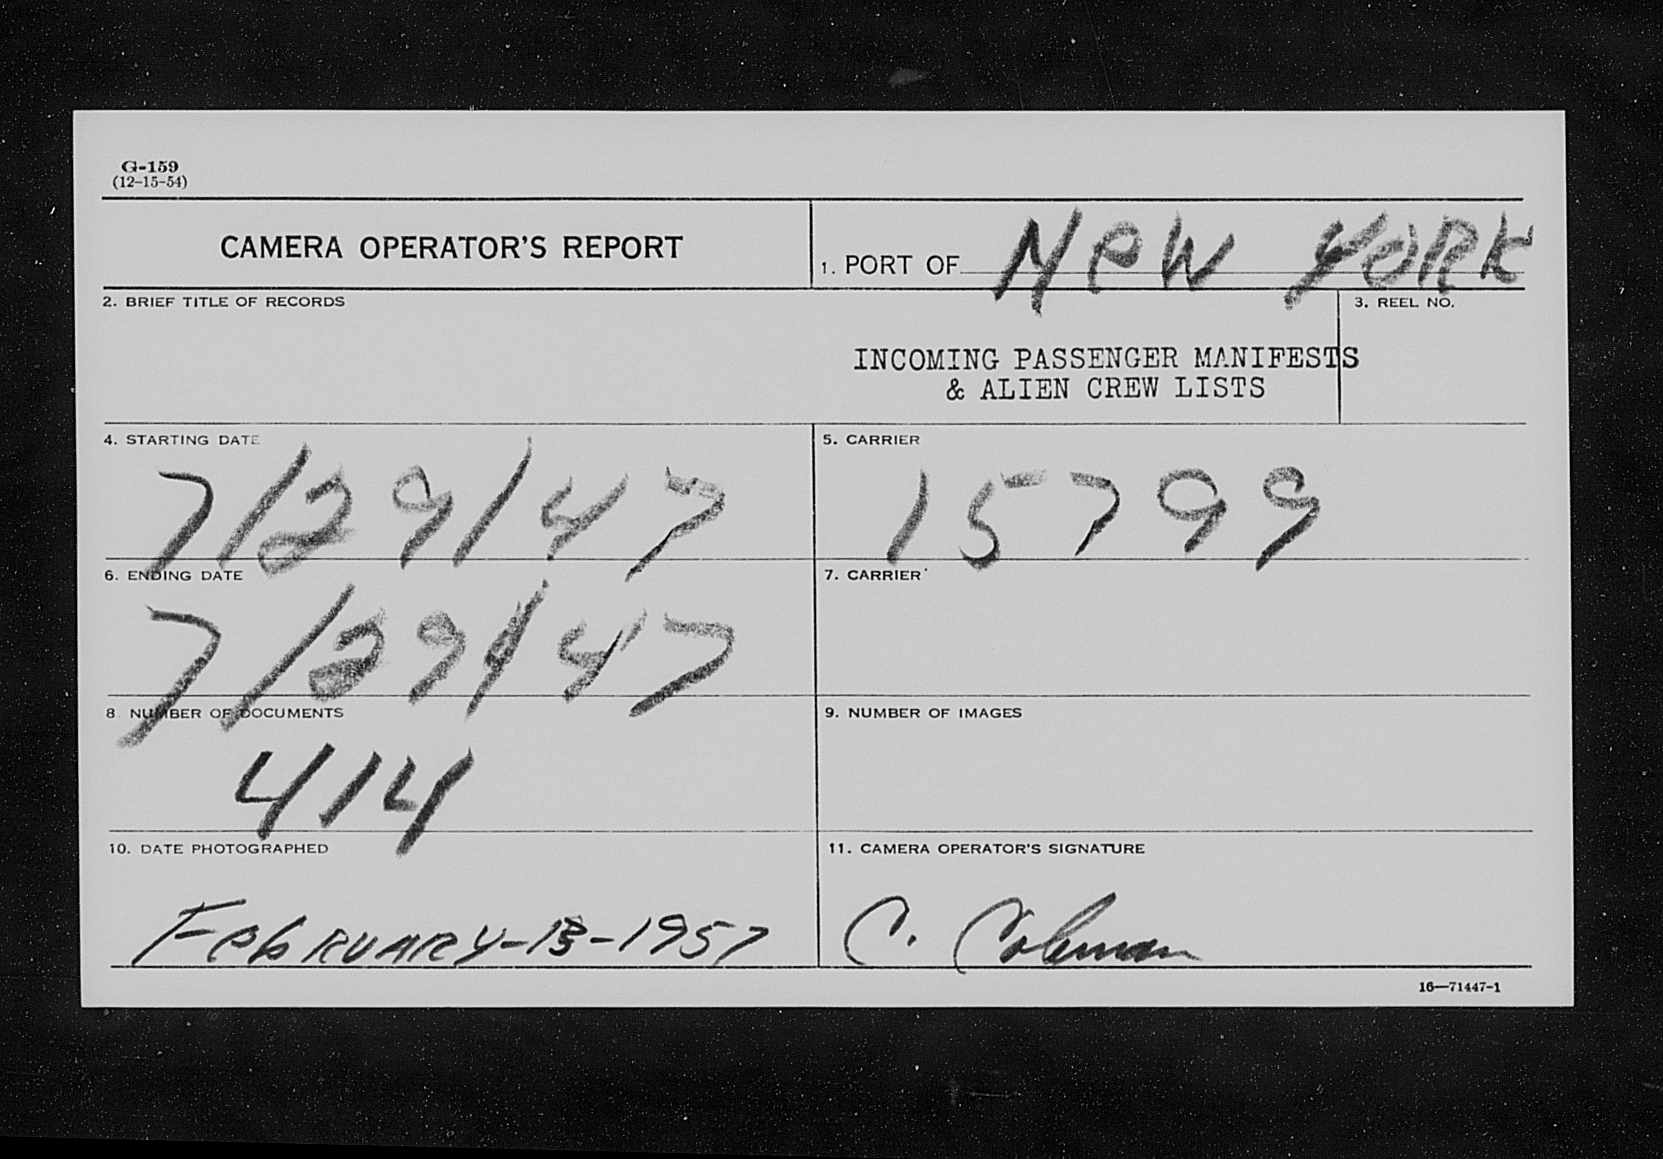 G-159
(12-15-54)
CAMERA OPERATOR'S REPORT
1. PORT OF NEW YORK
2. BRIEF TITLE OF RECORDS
3. REEL NO.
INCOMING PASSENGER MANIFESTS
& ALIEN CREW LISTS
4. STARTING DATE
5. CARRIER
7/29/47
15799
6. ENDING DATE
7. CARRIER
7/29/47
8 NUMBER OF DOCUMENTS
9. NUMBER OF IMAGES
414
10. DATE PHOTOGRAPHED
11. CAMERA OPERATOR'S SIGNATURE
FebRUARY-13-1957
C. Coleman
16—71447-1